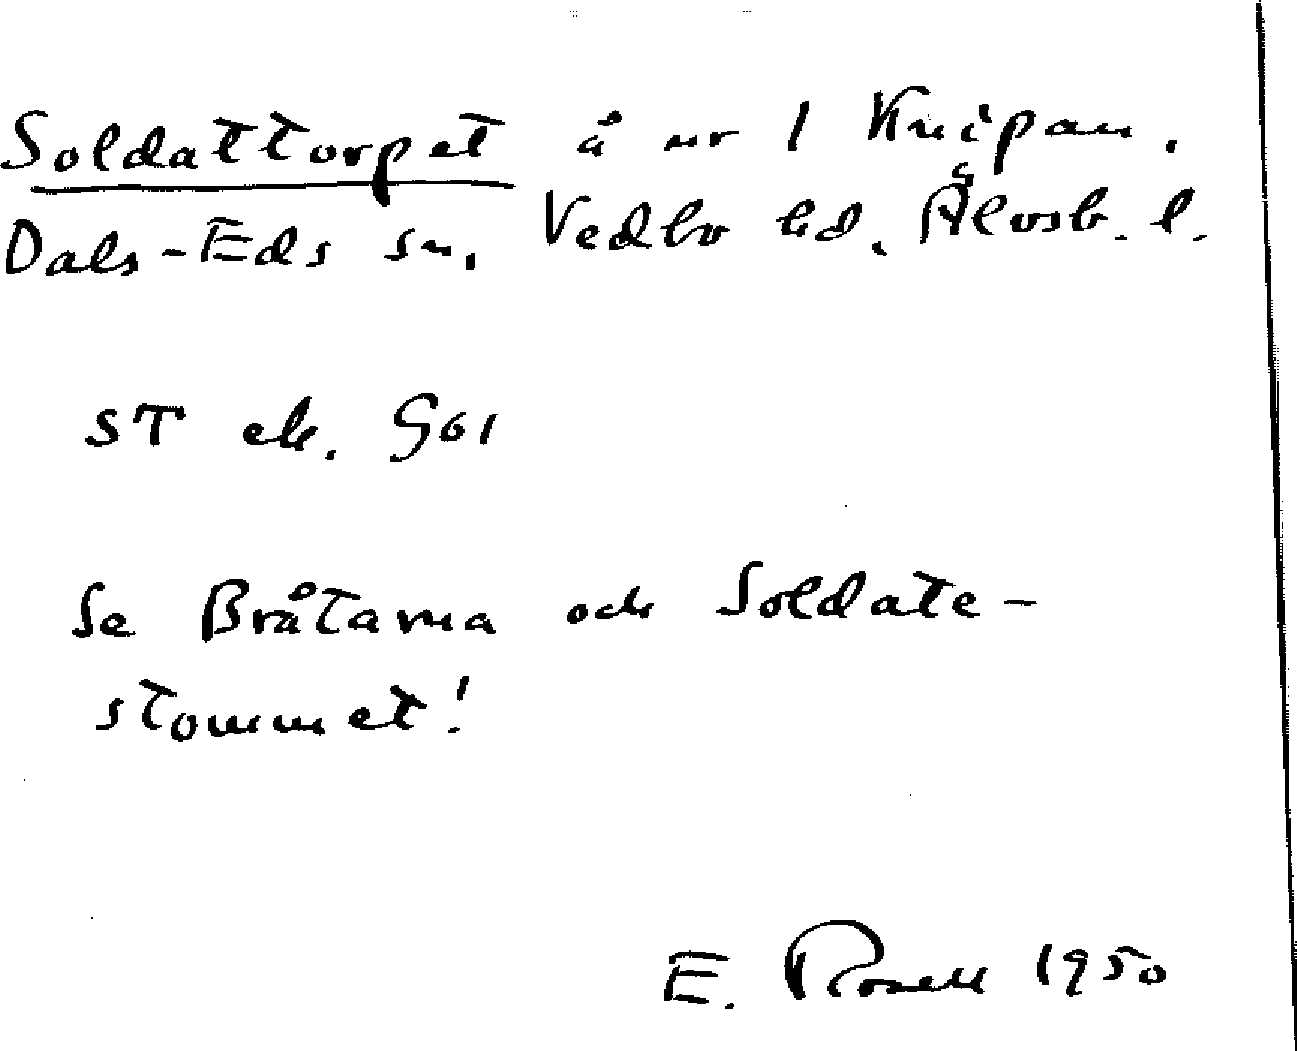 Soldattorpet å nr 1 Knipan.
Dals-Eds sn. Vedbo hd. Älvsb. l.
ST ek. G61
Se Bråtarna och Soldate-
stommet!
E. Rosell 1950